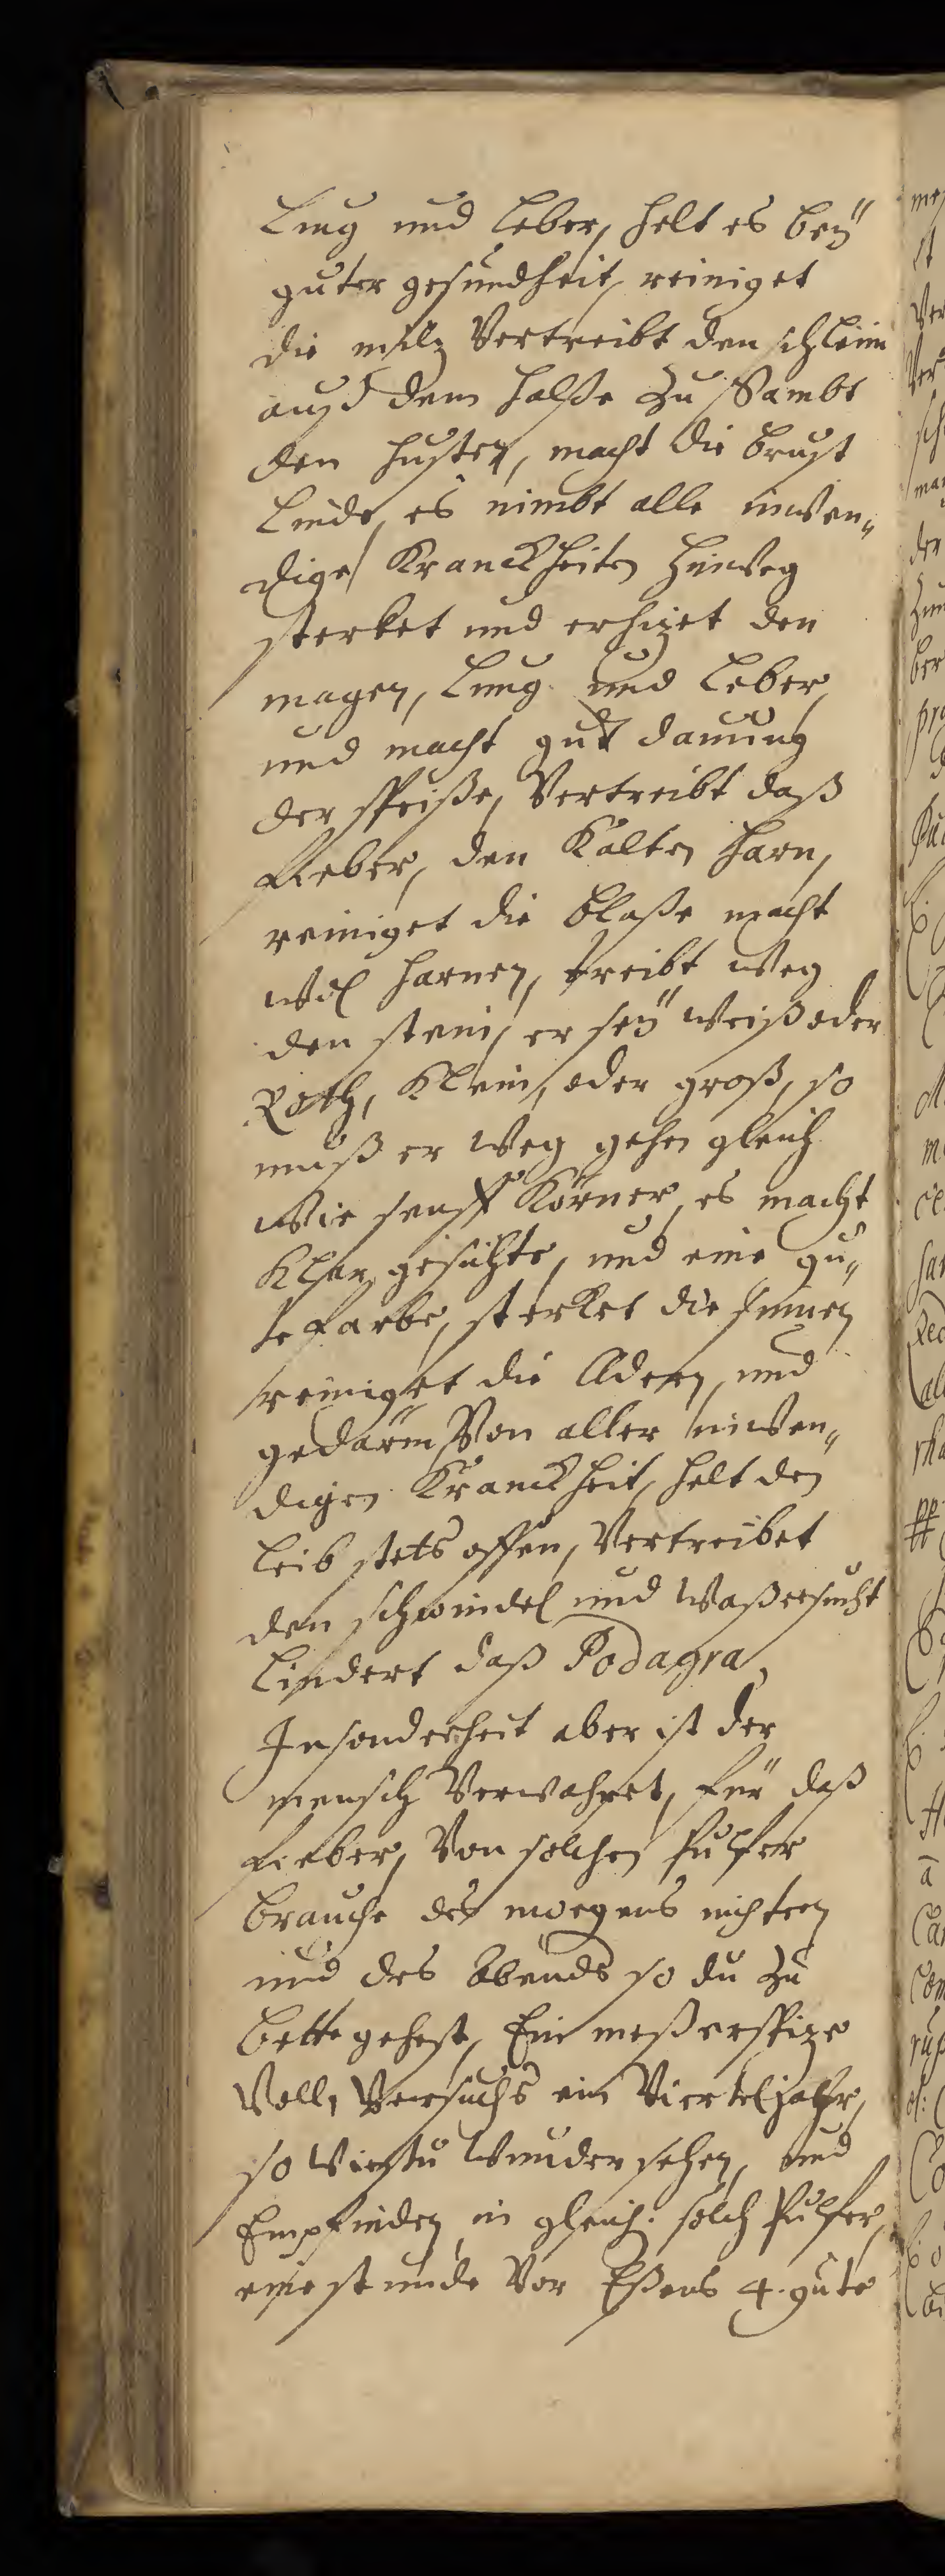 Lung und Leber, helt es beÿ
guter gesundheit, reiniget
die milz Vertreibt den schleim
auß dem halße zu Sambt
den husten, macht die brust
Linde, es nimbt alle inwen„
dige Kranckheiten hinweg
sterket und erhizet den
magen, Lung und Leber,
und macht gut dauung
der speiße, Vertreibt daß
fieber, den Kalten harn,
reiniget die blaße macht
wol harnen, treibt weg
den stein, er seÿ weiß oder
Roth, Klein, oder groß, so
muß er weg gehen gleich
wie senff Körner, es macht
Klar gesichte, und eine gu„
te farbe, sterket die sinnen
reiniget die Adern, und
gedärm Von aller inwen„
digen Kranckheit, helt den
leib stets offen, Vertreibet
den schwindel und Waßersucht
Lindert daß Podagra,
Insonderheit aber ist der
mensch Verwahret, für daß
fieber, Von solchen Pulfer
brauche des morgens nichtern
und des Abends so du zu
bette gehest, Ein meßerspize
Voll, Versuchs ein Vierteljahr,
so wirstu Wunder sehen, und
Empfinden, in gleich. solch Pulfer,
eine stunde Vor Eßens 4. gute